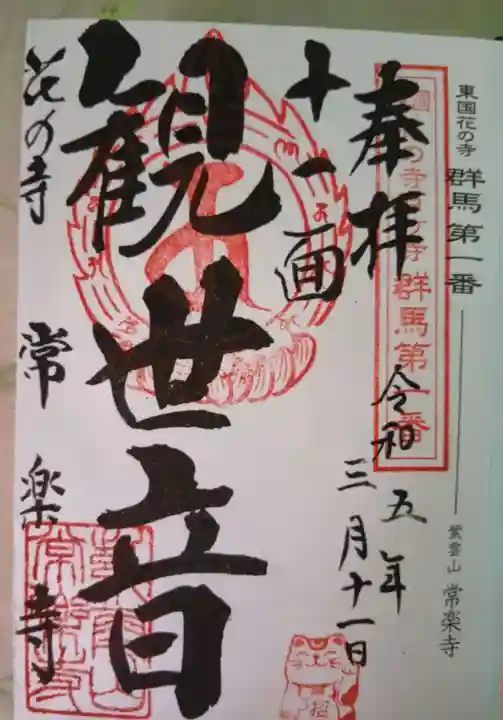 東国花の寺 群馬第一番
紫雲山 常楽寺
群馬第一番
奉拝
令和五年
三月十一日
十一面
観世音
花の寺 常楽寺
招